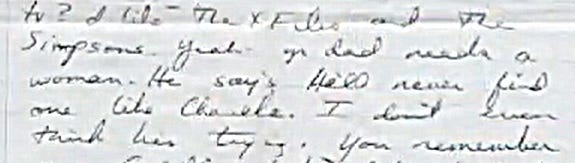 tv? I like The X Files and The
Simpsons. Yeah yr dad needs a
woman. He say's Hell never find
one like Charlie. I don't even
think hes trying. You remember